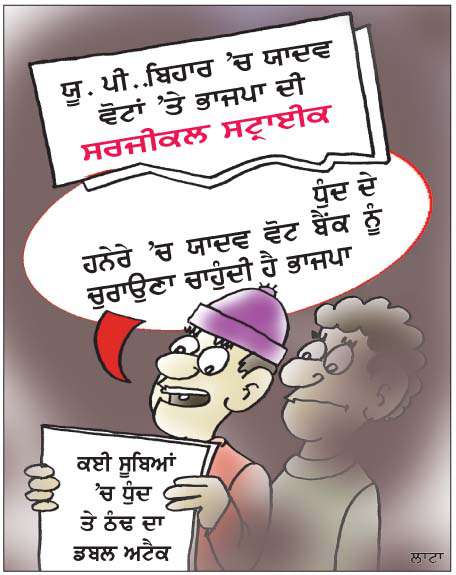 ਯੂ. ਪੀ..ਬਿਹਾਰ ’ਚ ਯਾਦਵ
ਵੋਟਾਂ ’ਤੇ ਭਾਜਪਾ ਦੀ
ਸਰਜੀਕਲ ਸਟ੍ਰਾਈਕ
ਧੁੰਦ ਦੇ
ਹਨੇਰੇ ’ਚ ਯਾਦਵ ਵੋਟ ਬੈਂਕ ਨੂੰ
ਚੁਰਾਉਣਾ ਚਾਹੁੰਦੀ ਹੈ ਭਾਜਪਾ
ਕਈ ਸੂਬਿਆਂ
’ਚ ਧੁੰਦ
ਤੇ ਠੰਢ ਦਾ
ਡਬਲ ਅਟੈਕ
ਲਾਟਾ